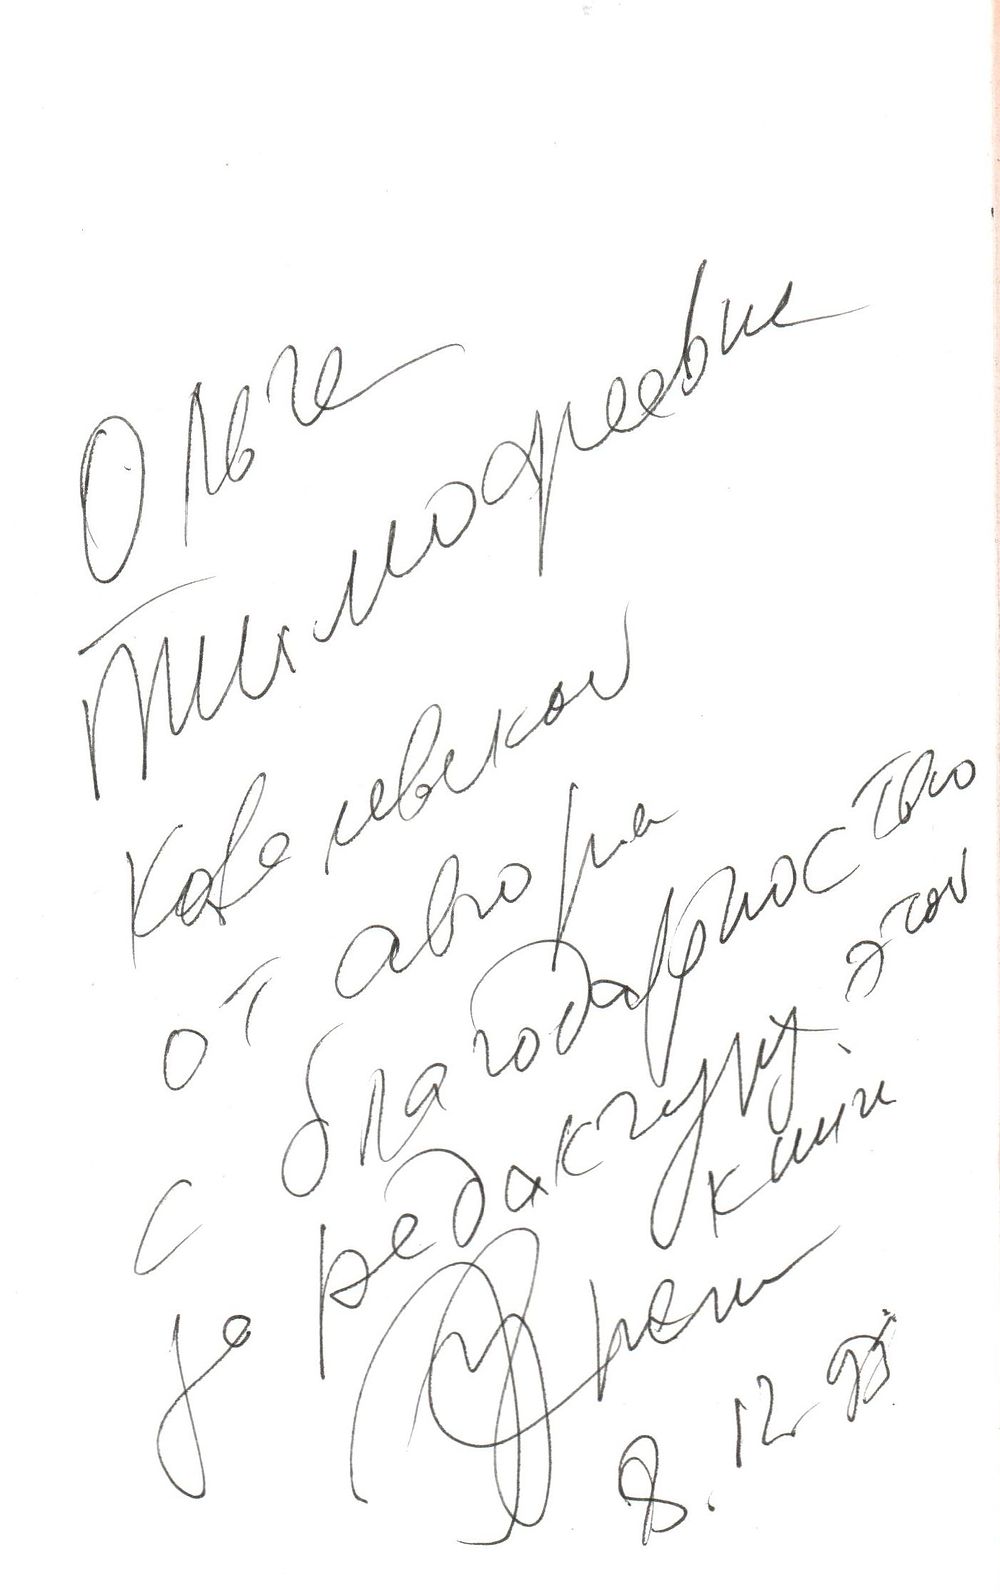 Ольге
Тимофеевне
Ковалевской
от автора
с благодарностью
за редактуру этой
книги
8.12.95